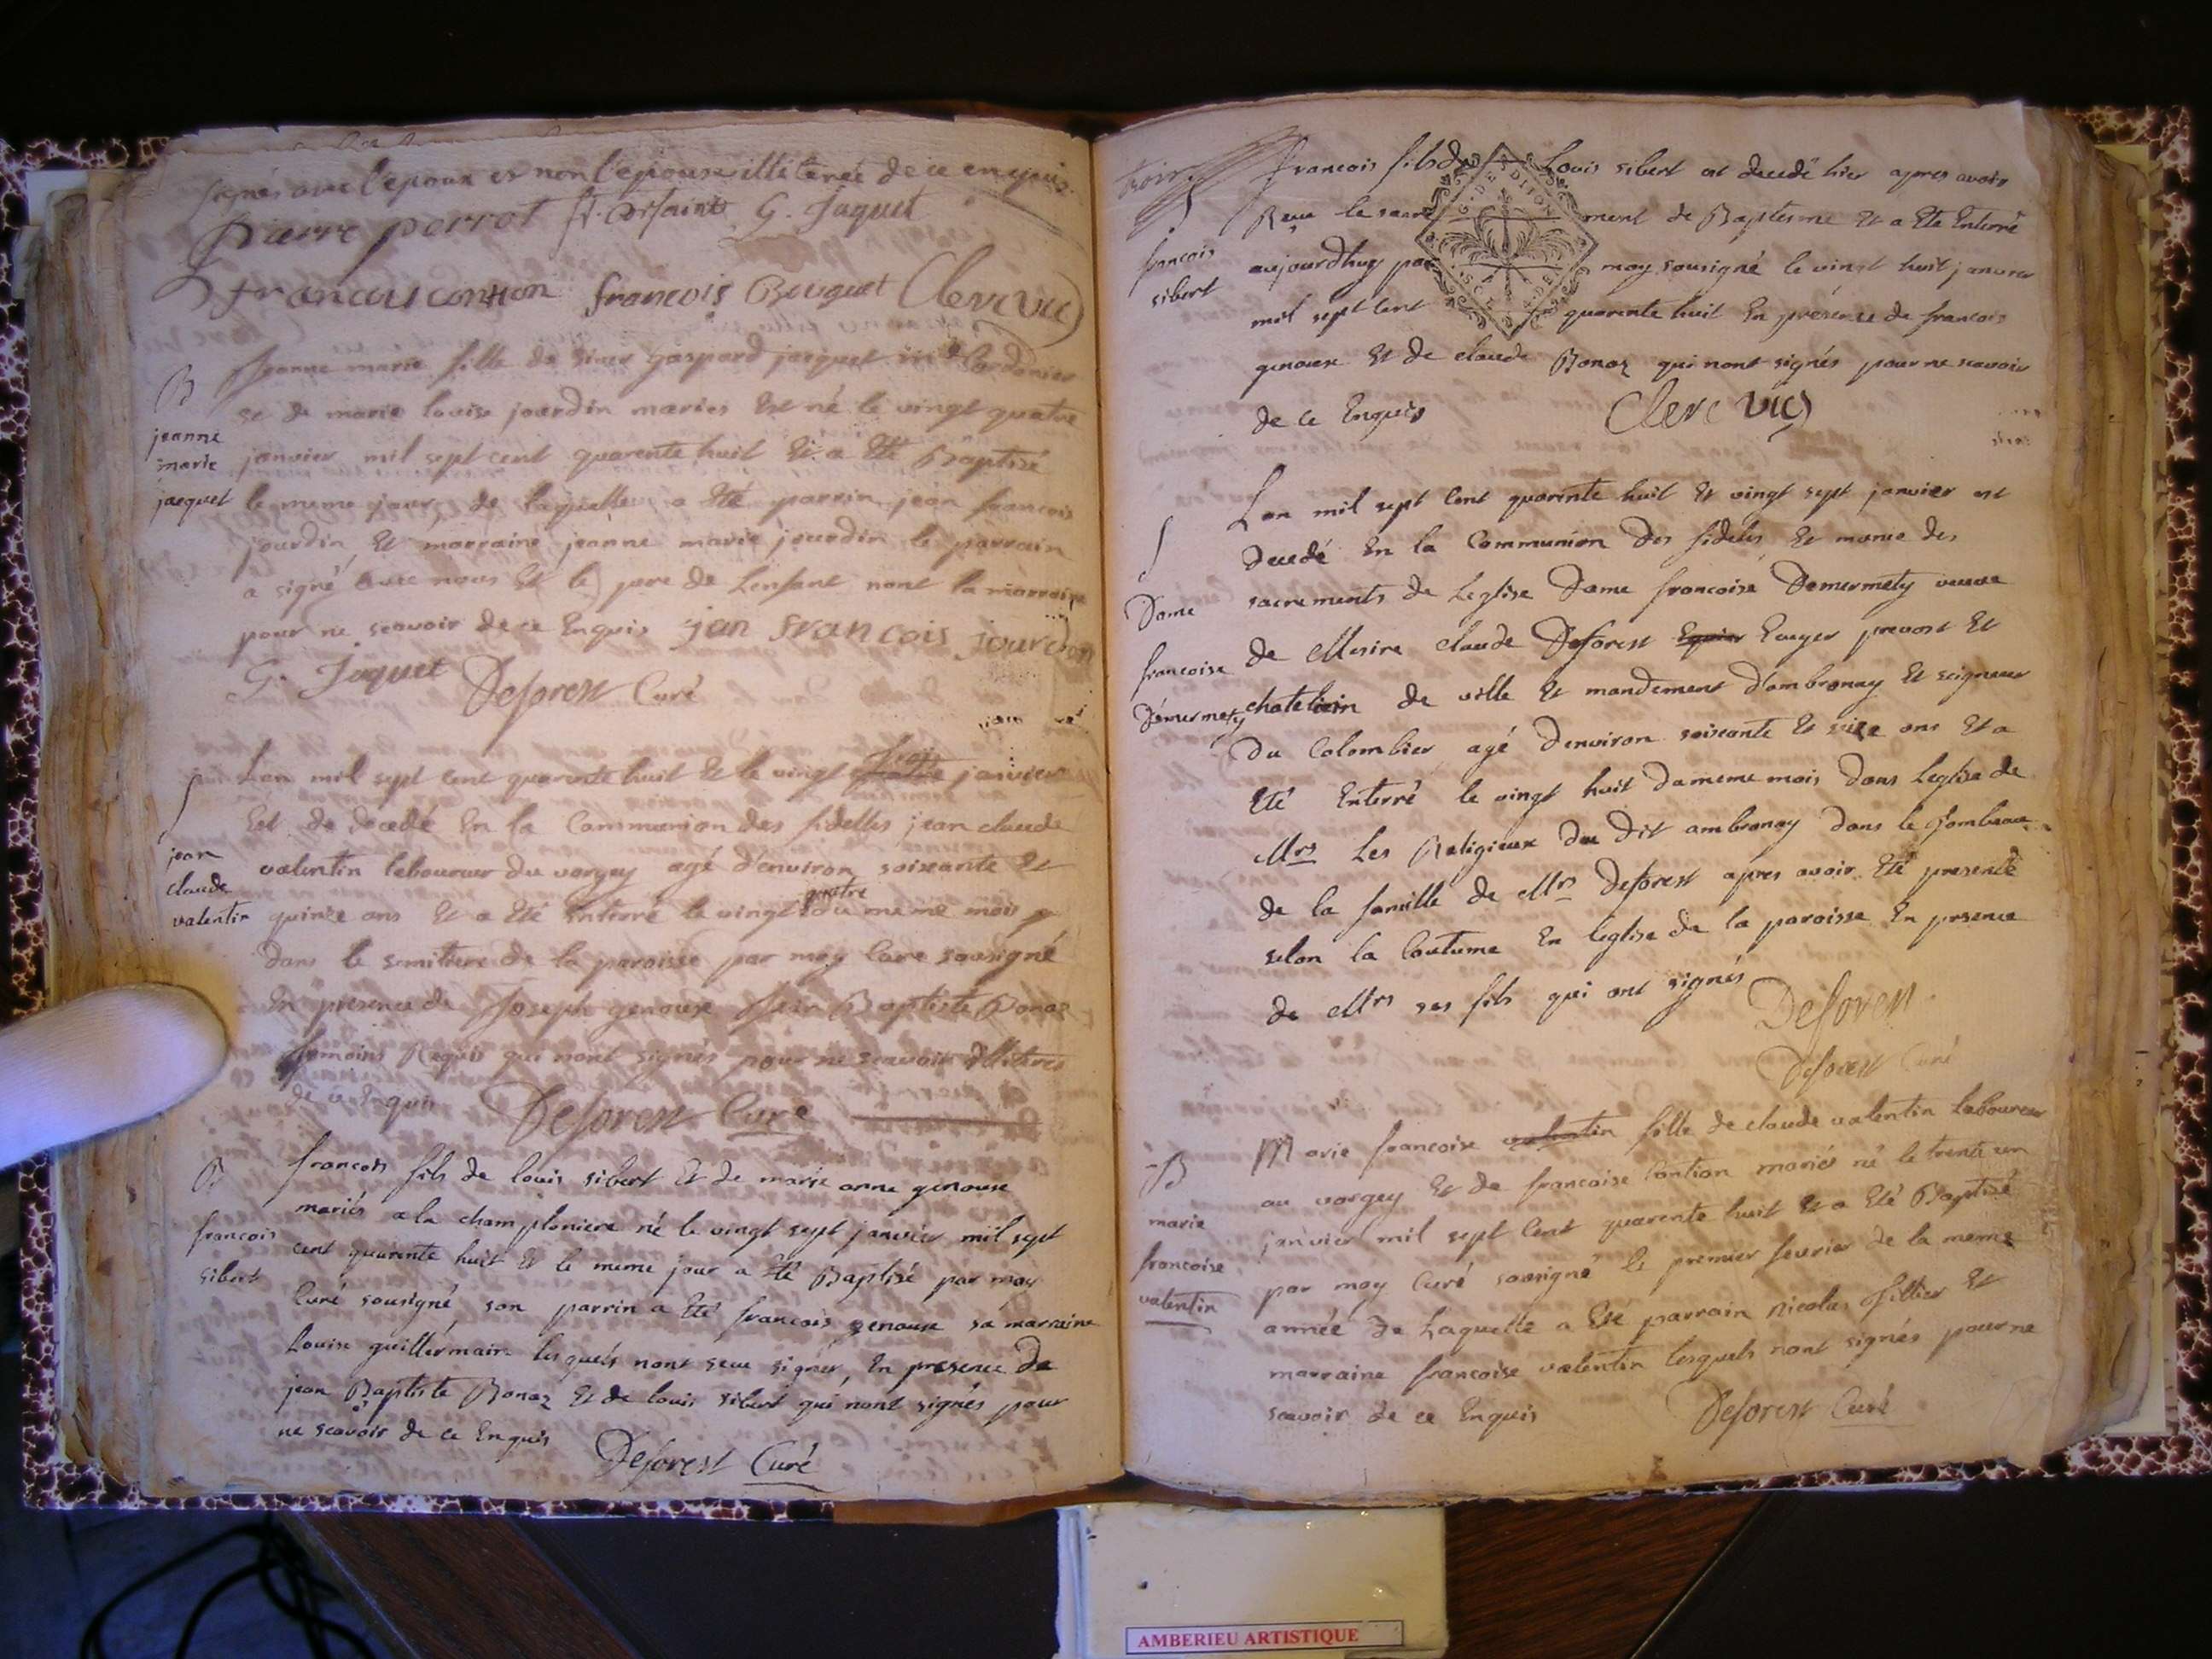 signés avec l'epoux et non l'epouse illiterée de ce enquis.
pierre perrot G. Jaquet
francois Bouquet Clerc vic
B
jeanne
marie
jacquet
jeanne marie fille de sieur gaspard jacquet
et de marie louise jourdin mariés Est né le vingt quatre
janvier mil sept cent quarente huit Et a Eté Baptisé
le meme jour, de laquelle a Eté parrin jean francois
jourdin Et marraine jeanne marie jourdin le parrain
a signé avec nous Et le pere de Lenfant nont la marraine
pour ne scavoir de ce Enquis jan francois jourdon
G. Jaquet Deforest Curé
S
jean
claude
valentin
Lan mil sept cent quarente huit Et le vingt trois janvier
Est de decedé En la Communion des fidelles jean claude
valentin laboureur du vorgey agé d'environ soixante Et
quinze ans Et a Eté Enterré le vingt quatre du meme mois
dans le semitiere de la paroisse par moy Curé sousigné
En presence de Joseph genouse jean Baptiste Bonaz
temoins Requis qui nont signés pour ne scavoir illiteres
de ce Enquis Deforest Curé
B
francois
sibert
francois fils de louis sibert Et de marie anne genouse
mariés a la champloniere né le vingt sept janvier mil sept
cent quarente huit Et le meme jour a Eté Baptisé par moy
Curé sousigné, son parrin a Eté francois genouse sa marraine
Louise guillermain lesquels nont sceu signer, En presence De
jean Baptiste Bonaz Et de louis sibert qui nont signés pour
ne scavoir de ce Enquis
Deforest Curé
trois
S
francois
sibert
francois fils de Louis sibert est decedé hier apres avoir
Reçu le sacrement de Baptesme Et a Eté Enterré
aujourdhuy par moy sousigné le vingt huit janvier
mil sept cent quarente huit En presence de francois
genouse Et de claude Bonaz qui nont signés pour ne scavoir
de ce Enquis Clerc vic
S
Dame
francoise
Demermety
Lan mil sept Cent quarente huit Et vingt sept janvier est
Decedé En la Communion Des fideles Et munie des
sacrements de Leglise Dame francoise Demermety veuve
de Messire claude Deforest Equier Ecuyer prevost Et
chatelain de ville Et mandement d'ambronay Et seigneur
Du Colombier agé denviron soixante Et seize ans Et a
Eté Enterré le vingt huit du meme mois Dans Leglise de
Mrs Les Religieux Du Dit ambronay Dans le Tombeau
de la famille de Mrs Deforest apres avoir Eté presenté
selon la Coutume En leglise de la paroisse En presence
de Mrs ses fils qui ont signés Deforest
Deforest Curé
B
marie
francoise
valentin
Marie francoise valentin fille de claude valentin Laboureur
au vorgey Et de francoise Contion mariés né le trente un
janvier mil sept Cent quarente huit Et a Eté Baptisé
par moy Curé sousigné le premier fevrier de la meme
année de Laquelle a Eté parrain nicolas Et
marraine francoise valentin lesquels nont signés pour ne
scavoir de ce Enquis Deforest Curé
AMBERIEU ARTISTIQUE